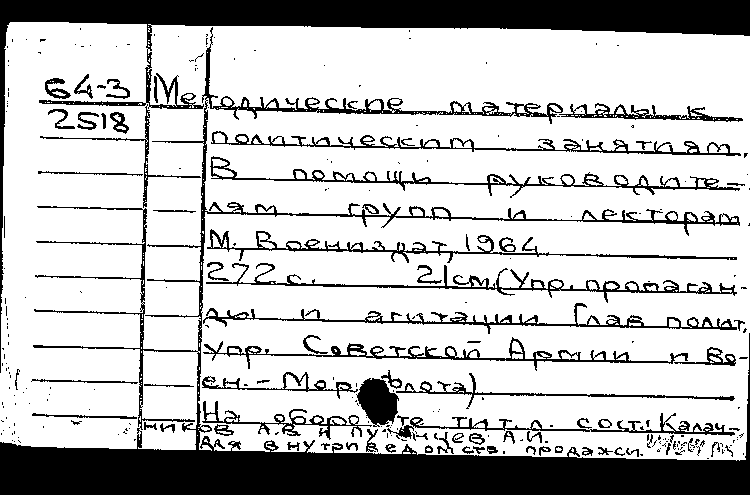 64-3 Методические материалы к
2518 политическим занятиям.
В помощи руководите-
лям групп и лекторам.
М., Воениздат, 1964.
272 с. 21 см. (Упр. пропаган-
ды и агитации Глав полит.
упр. Советской Армии и Во-
ен.-Мор. Флота).
На обороте тит. л. сост.: Калач-
ников А.В. и А.И.
Для внутриведомств. продажи.